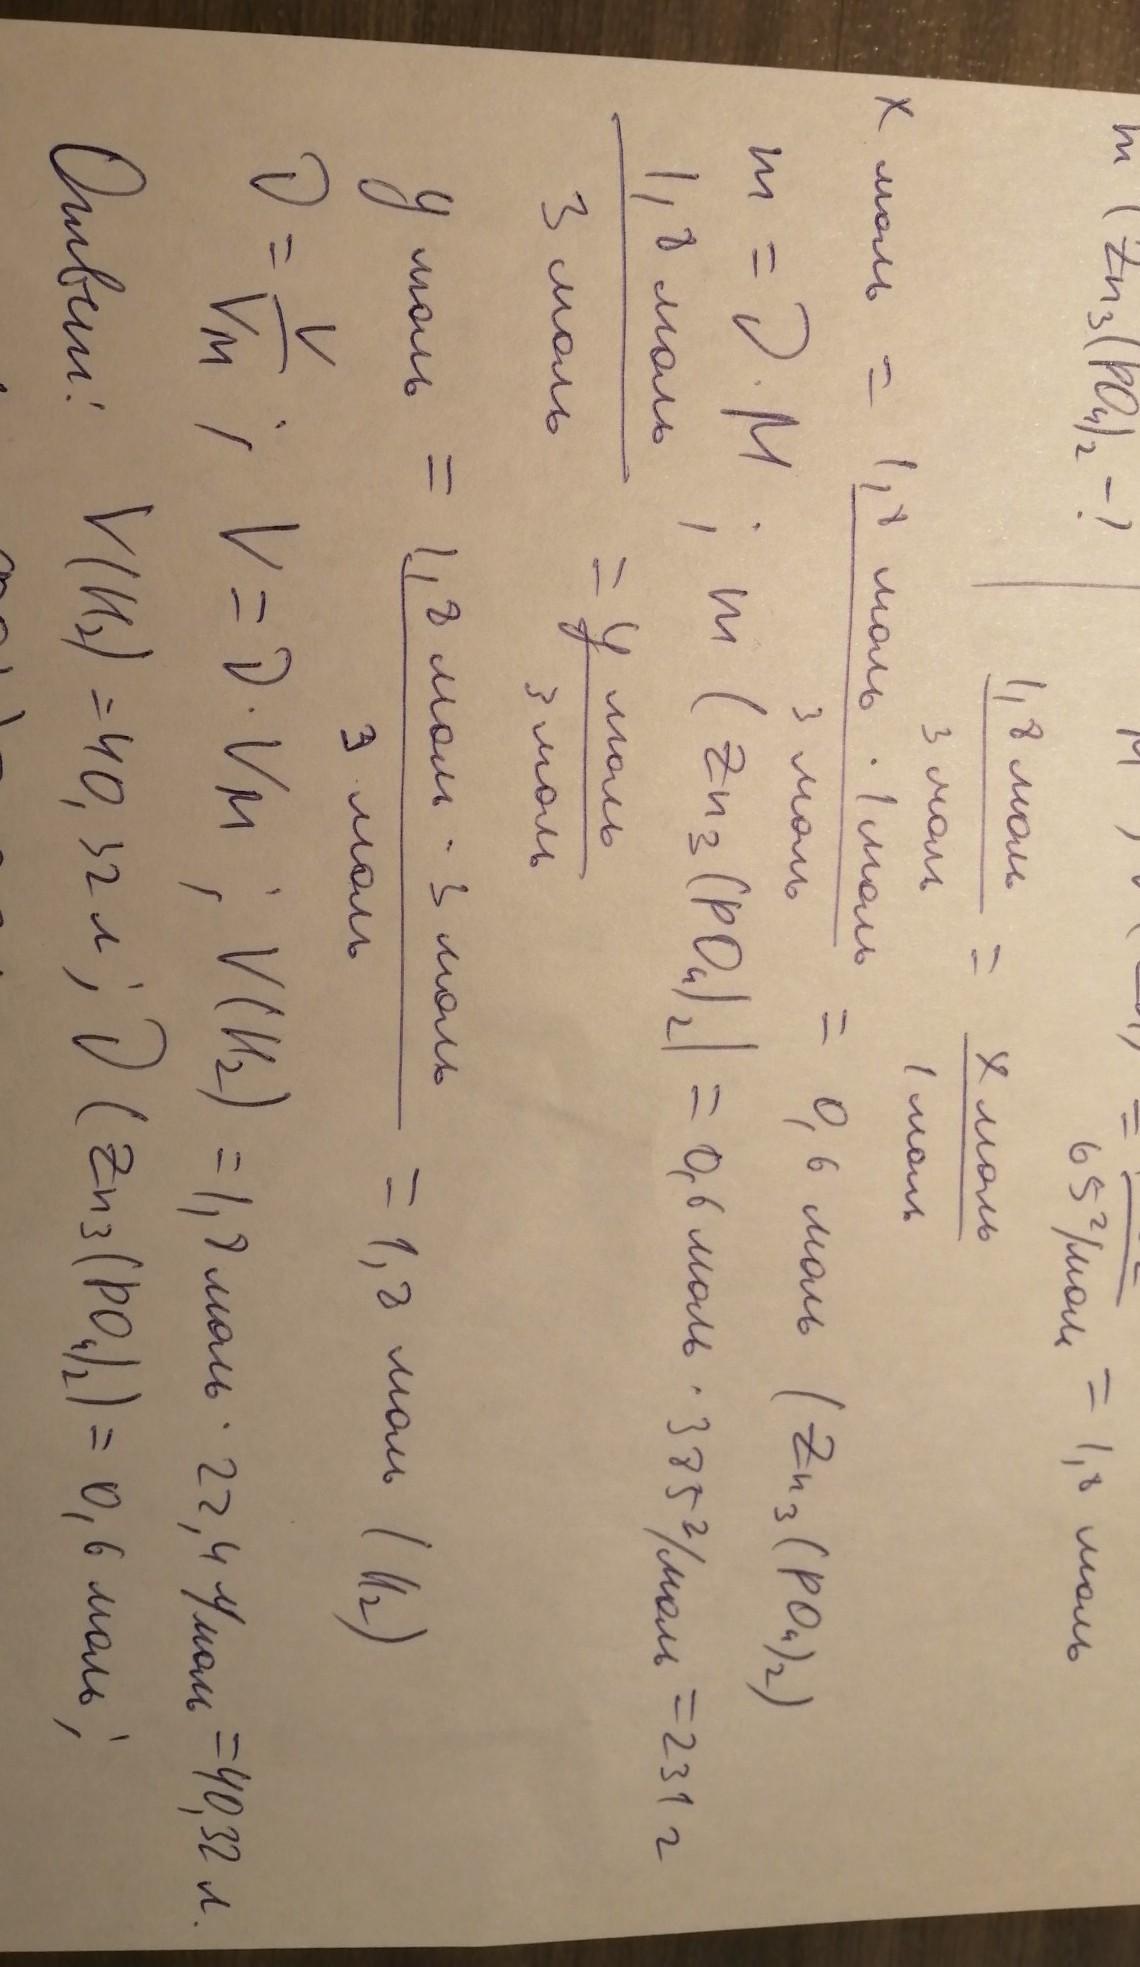 m (Zn3(PO4)2 - ?
65 г/моль = 1,8 моль
1,8 моль / 3 моль = x моль / 1 моль
x моль = 1,8 моль · 1 моль / 3 моль = 0,6 моль (Zn3(PO4)2)
m = ν · M ; m (Zn3(PO4)2) = 0,6 моль · 385 г/моль = 231 г
1,8 моль / 3 моль = y моль / 3 моль
y моль = 1,8 моль · 3 моль / 3 моль = 1,8 моль (H2)
ν = V / Vм ; V = ν · Vм ; V(H2) = 1,8 моль · 22,4 л/моль = 40,32 л.
Ответ: V(H2) = 40,32 л ; ν (Zn3(PO4)2) = 0,6 моль ;